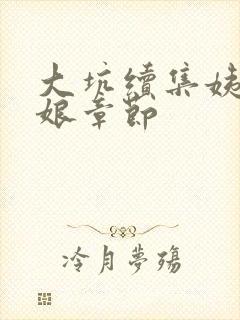 大坑續集姨
娘章節
冷月夢殤